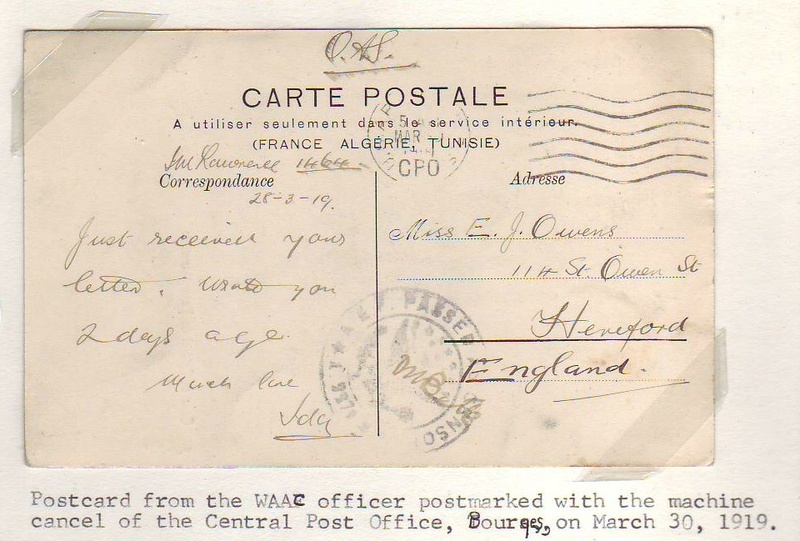 O.A.S.
CARTE POSTALE
A utiliser seulement dans le service intérieur.
(FRANCE ALGÉRIE, TUNISIE)
5
MAR
CPO
1464
Correspondance
Adresse
28-3-19.
Just received your
letter. Wrote you
2 days ago.
Much love
Ida
Miss E. J. Owens
114 St. Owen St
Hereford
England.
A.E.F. PASSED
Postcard from the WAAC officer postmarked with the machine
cancel of the Central Post Office, Bourges, on March 30, 1919.